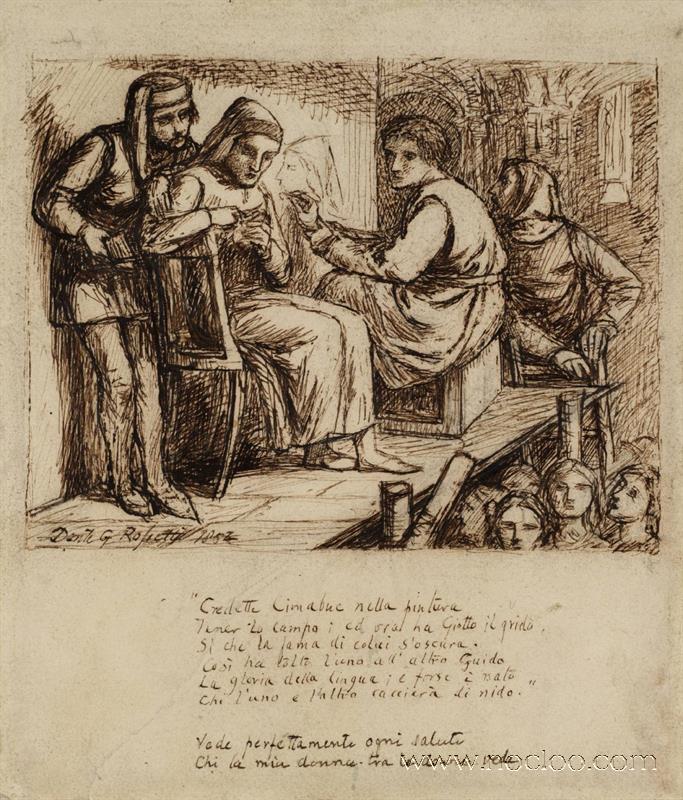 Dante G Rossetti 1852
"Credette Cimabue nella pintura
Tener lo campo; ed ora ha Giotto il grido,
Sì che la fama di colui s'oscura.
Così ha tolto l'uno all' altro Guido
La gloria della lingua; e forse è nato
Chi l'uno e l'altro caccierà di nido."
Vede perfettamente ogni salute
Chi la mia donna tra le donne vede
www.nocloo.com